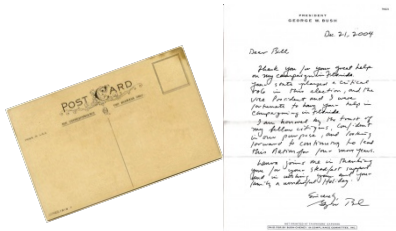 POST CARD
PRESIDENT
GEORGE W. BUSH
Dec. 21, 2004
Dear Bill
Thank you for your great help
on my campaign in Florida.
Your state played a critical
role in this election, and the
Vice President and I were
fortunate to have your help in
campaigning in Florida.
I am honored by the trust of
my fellow citizens, confident
in our purpose, and looking
forward to continuing to lead
this Nation for four more years.
Laura joins me in thanking
you for your steadfast support
and in wishing you and your
family a wonderful Holiday.
Sincerely